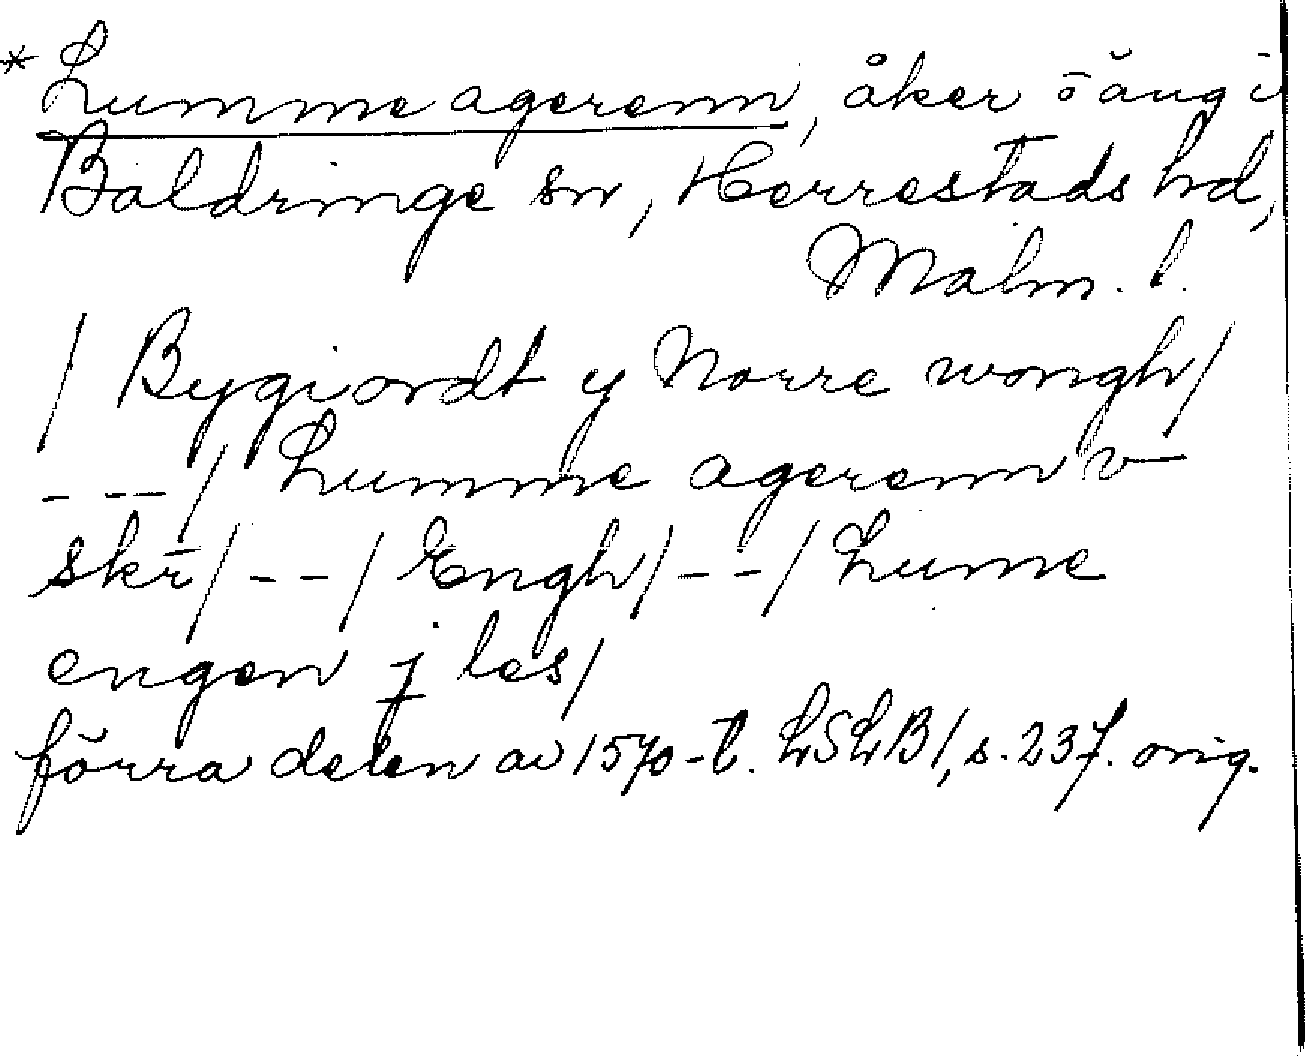 * Lumme agerenn, åker o äng i
Baldringe sn, Herrestads hd,
Malm. l.
/ Bygiordt y Norre wongh /
- - - / Lumme agerenn v
skr / - - / Engh / - - / Lume
engen j les /
förra delen av 1570-t. LSLB 1, s. 237. orig.